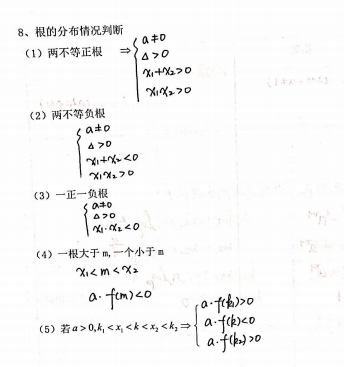 8、根的分布情况判断
(1) 两不等正根 ⇒ { a≠0
Δ>0
x₁+x₂>0
x₁x₂>0
(2) 两不等负根
{ a≠0
Δ>0
x₁+x₂<0
x₁x₂>0
(3) 一正一负根
{ a≠0
Δ>0
x₁·x₂<0
(4) 一根大于 m,一个小于 m
x₁<m<x₂
a·f(m)<0
(5) 若 a>0,k₁<x₁<k<x₂<k₂ ⇒ { a·f(k₁)>0
a·f(k)<0
a·f(k₂)>0